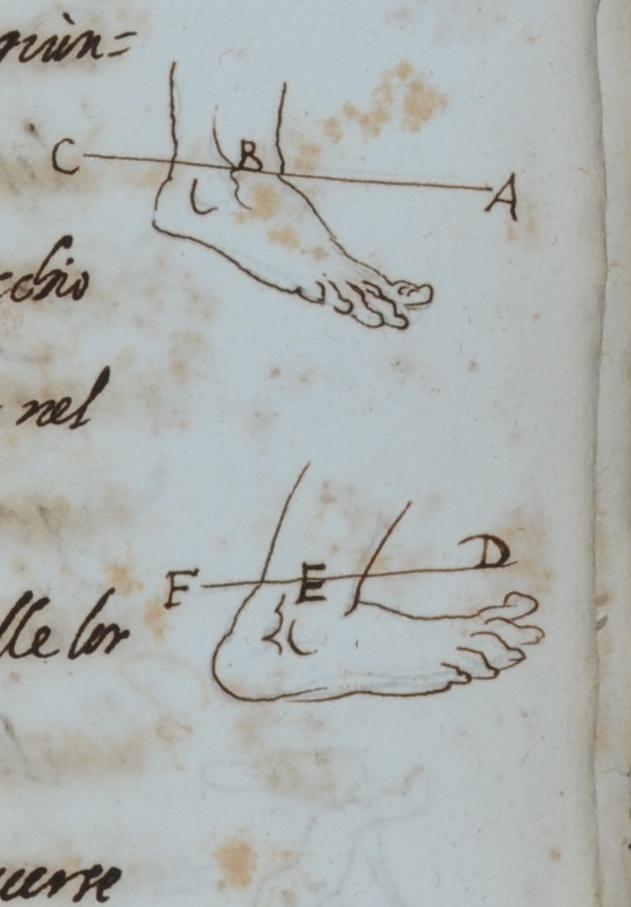 giun=
C B A
cchio
nel
F E D
lle lor